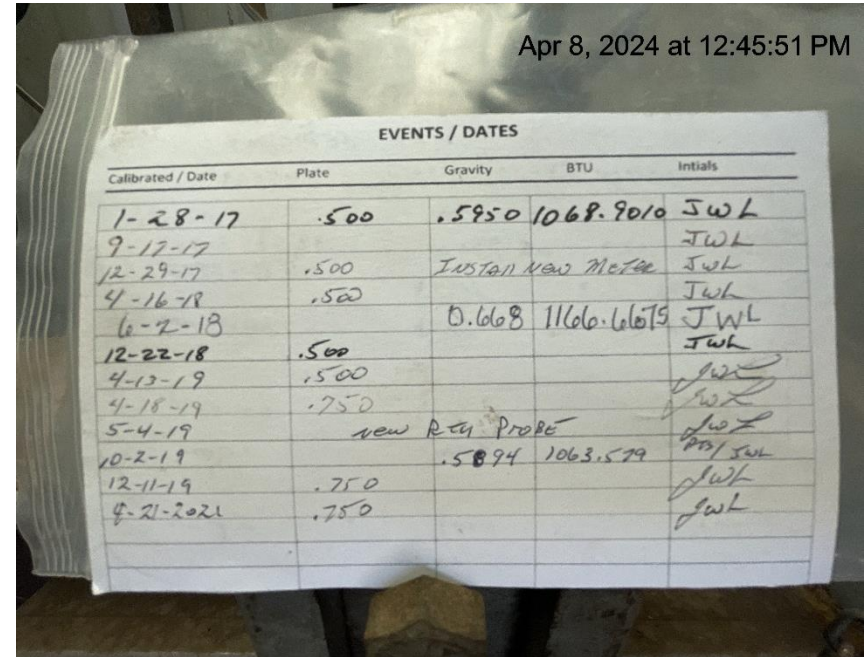 Apr 8, 2024 at 12:45:51 PM
EVENTS / DATES
Calibrated / Date Plate Gravity BTU Intials
1-28-17 .500 .5950 1068.9010 JWL
9-17-17 JWL
12-29-17 .500 INSTAll NEW METER JWL
4-16-18 .500 JWL
6-2-18 0.668 1166.6675 JWL
12-22-18 .500 JWL
4-13-19 .500 JWL
4-18-19 .750 JWL
5-4-19 NEW RTU PROBE JWL
10-2-19 .5894 1063.579 / JWL
12-11-19 .750 JWL
-21-2021 .750 JWL